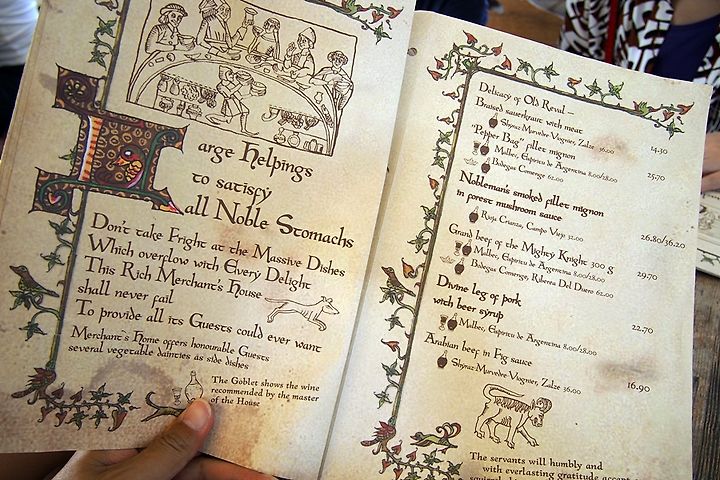 Large Helpings
to satisfy
all Noble Stomachs
Don't take Fright at the Massive Dishes
Which overclow with Every Delight
This Rich Merchant's House
shall never fail
To provide all its Guests could ever want
Merchant's Home offers honourable Guests
several vegetable dainties as side dishes
The Goblet shows the wine
recommended by the master
of the House
Delicacy of Old Reval –
Braised sauerkraut with meat
Shyraz-Murvedre-Viognier, Zalze 36.00 14.30
"Pepper Bag" fillet mignon
Malbec, Espiritu de Argentina 8.00/28.00 25.70
Bodegas Comenge 62.00
Nobleman's smoked fillet mignon
in forest mushroom sauce
Rioja Crianza, Campo Viejo 32.00 26.80/36.20
Grand beef of the Mighty Knight 300 g
Malbec, Espiritu de Argentina 8.00/28.00 29.70
Bodegas Comenge, Riberea Del Duero 62.00
Divine leg of pork
with beer syrup 22.70
Malbec, Espiritu de Argentina 8.00/28.00
Arabian beef in Fig sauce
Shyraz-Murvedre-Viognier, Zalze 36.00 16.90
The servants will humbly and
with everlasting gratitude accept